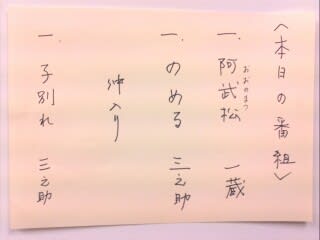 〈本日の番組〉
一、阿武松 一蔵
おおのまつ
一、のめる 三之助
仲入り
一、子別れ 三之助